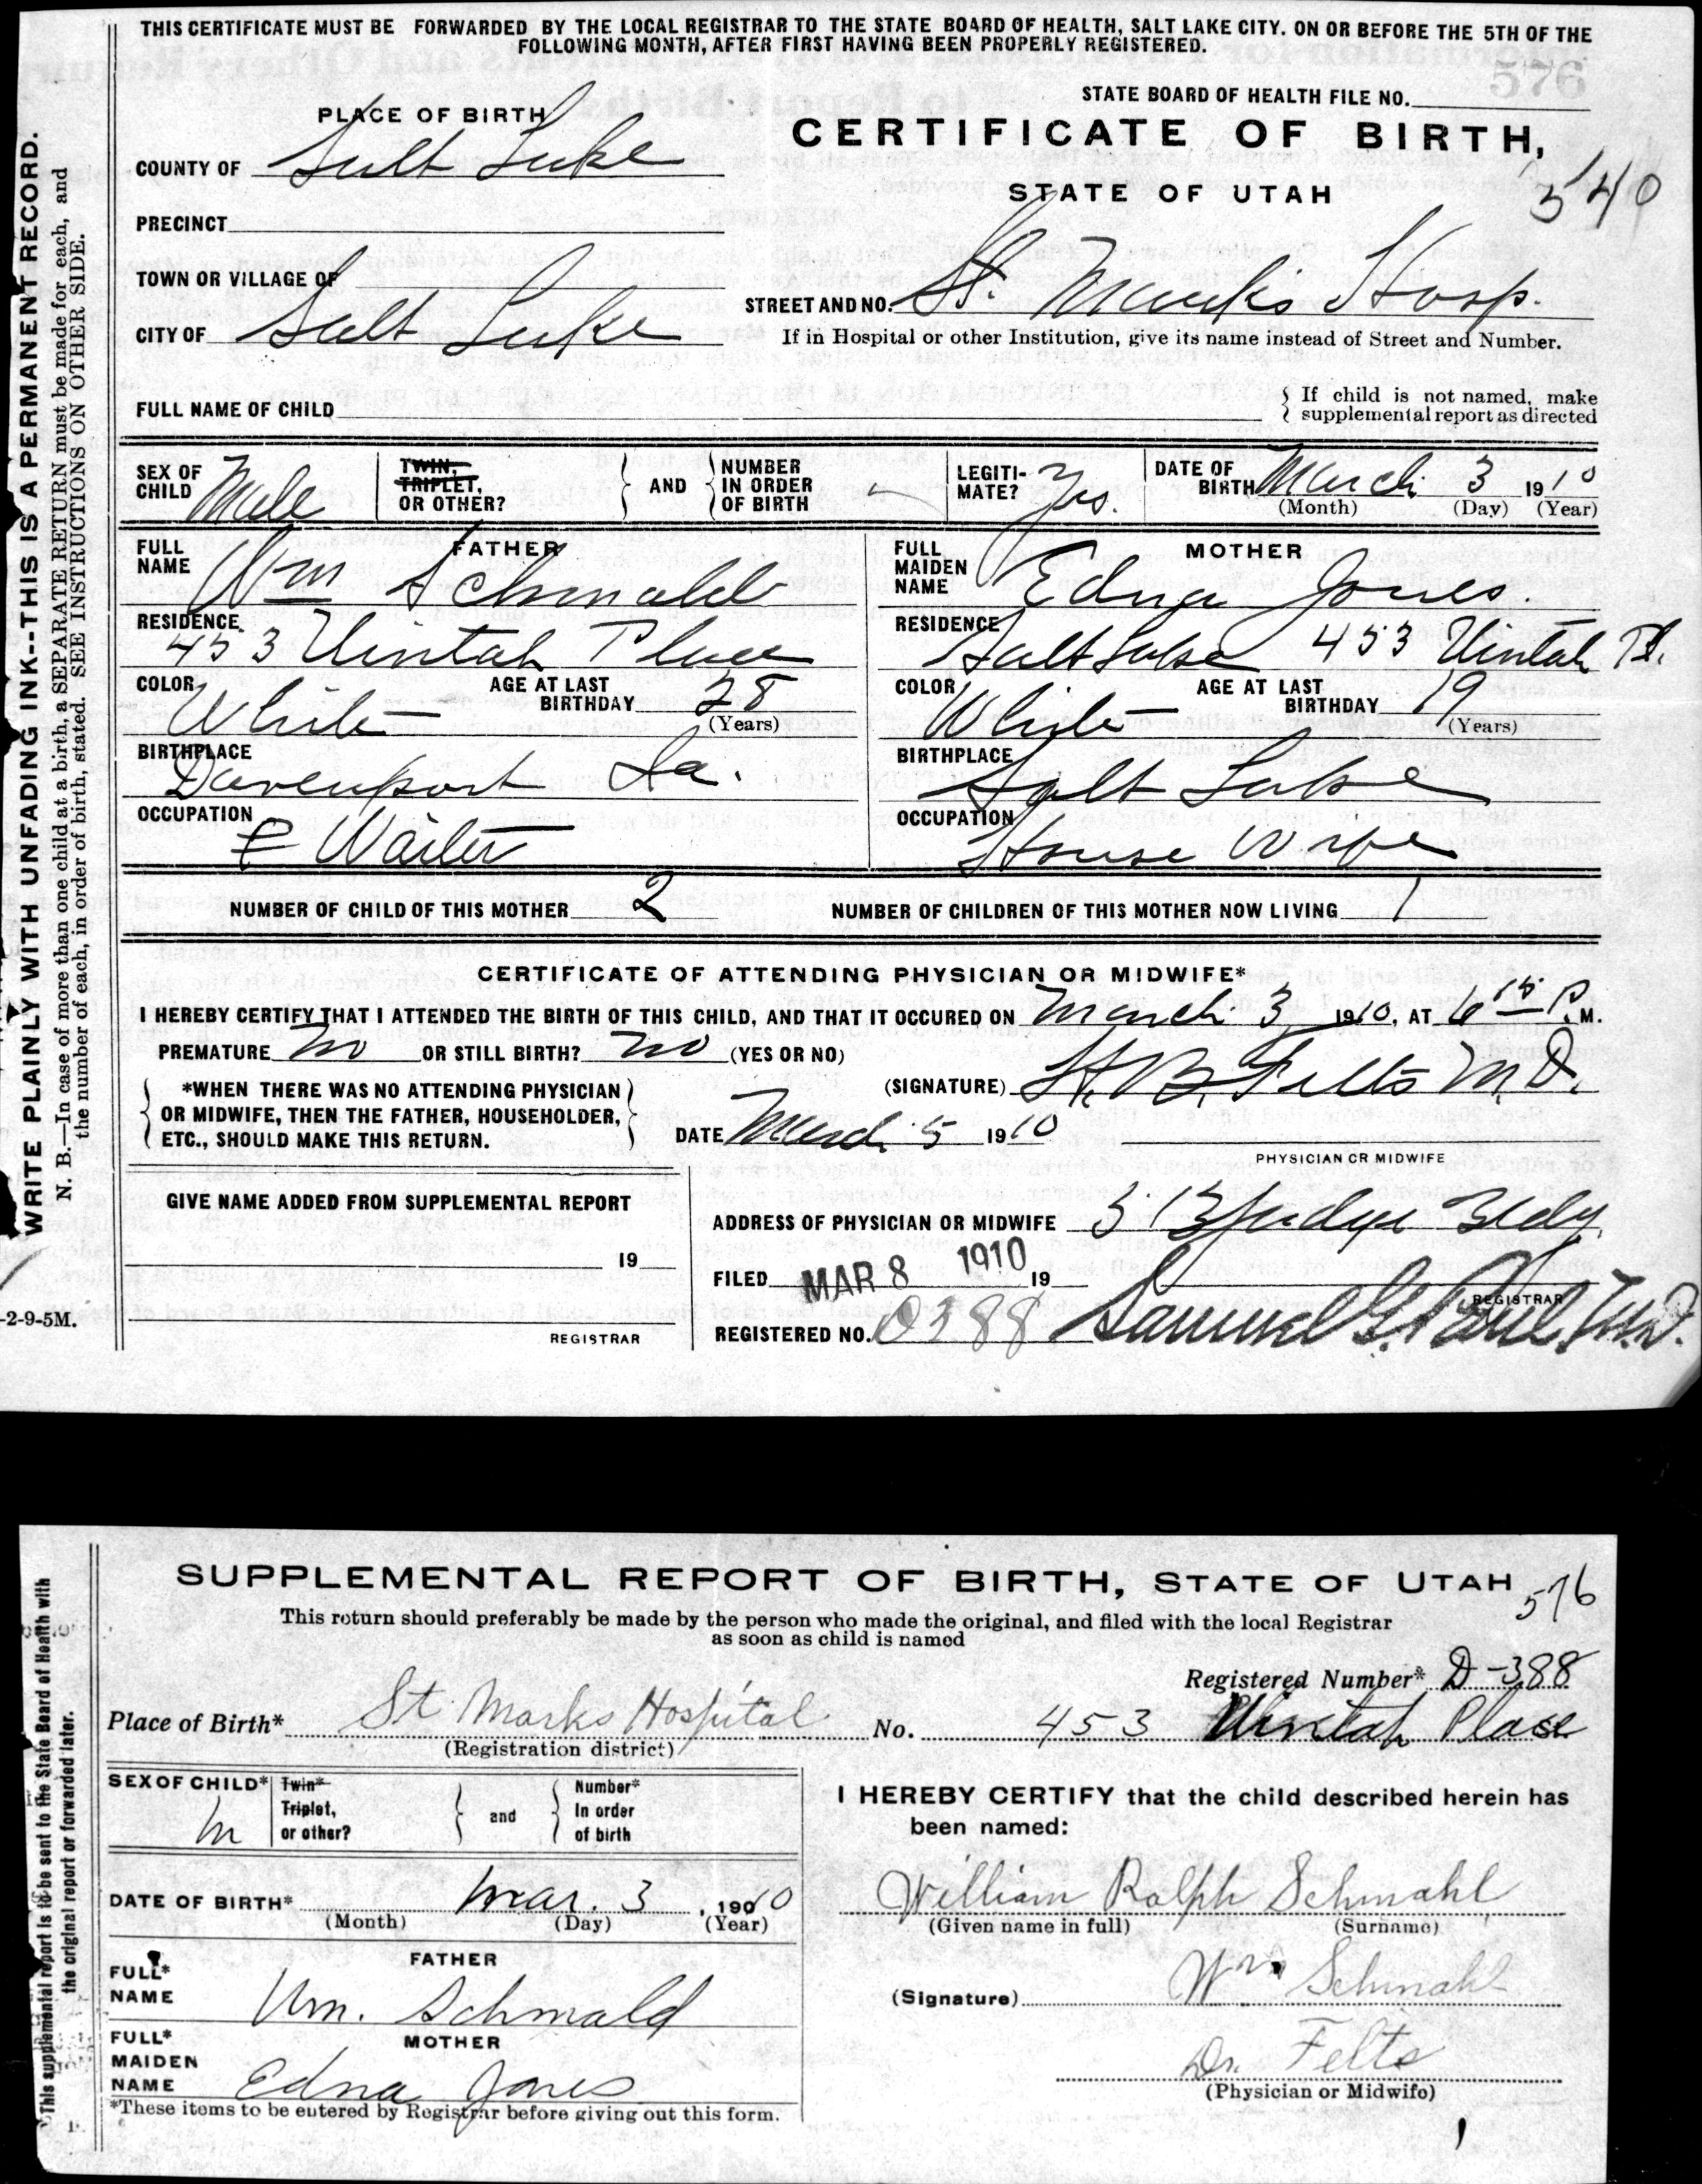 THIS CERTIFICATE MUST BE FORWARDED BY THE LOCAL REGISTRAR TO THE STATE BOARD OF HEALTH, SALT LAKE CITY. ON OR BEFORE THE 5TH OF THE
FOLLOWING MONTH, AFTER FIRST HAVING BEEN PROPERLY REGISTERED.
576
STATE BOARD OF HEALTH FILE NO.
PLACE OF BIRTH
CERTIFICATE OF BIRTH,
COUNTY OF Salt Lake
STATE OF UTAH
540
PRECINCT
TOWN OR VILLAGE OF
STREET AND NO. St. Marks Hosp.
CITY OF Salt Lake
If in Hospital or other Institution, give its name instead of Street and Number.
FULL NAME OF CHILD
If child is not named, make
supplemental report as directed
SEX OF CHILD Male
TWIN, TRIPLET, OR OTHER?
AND
NUMBER IN ORDER OF BIRTH
LEGITI-MATE? Yes.
DATE OF BIRTH March 3 1910
(Month) (Day) (Year)
FATHER
FULL NAME Wm Schmald
MOTHER
FULL MAIDEN NAME Edna Jones.
RESIDENCE 453 Uintah Place
RESIDENCE Salt Lake 453 Uintah Pl.
COLOR White AGE AT LAST BIRTHDAY 28 (Years)
COLOR White AGE AT LAST BIRTHDAY 19 (Years)
BIRTHPLACE Davenport Ia.
BIRTHPLACE Salt Lake
OCCUPATION Waiter
OCCUPATION House Wife
NUMBER OF CHILD OF THIS MOTHER 2
NUMBER OF CHILDREN OF THIS MOTHER NOW LIVING 1
CERTIFICATE OF ATTENDING PHYSICIAN OR MIDWIFE*
I HEREBY CERTIFY THAT I ATTENDED THE BIRTH OF THIS CHILD, AND THAT IT OCCURED ON March 3 1910, AT 6 15 P.M.
PREMATURE No OR STILL BIRTH? No (YES OR NO)
*WHEN THERE WAS NO ATTENDING PHYSICIAN
OR MIDWIFE, THEN THE FATHER, HOUSEHOLDER,
ETC., SHOULD MAKE THIS RETURN.
(SIGNATURE) H. B. Felts M.D.
DATE March 5 1910
PHYSICIAN OR MIDWIFE
GIVE NAME ADDED FROM SUPPLEMENTAL REPORT
19
REGISTRAR
ADDRESS OF PHYSICIAN OR MIDWIFE 313 Judge Bldg
FILED MAR 8 1910 19
REGISTRAR
REGISTERED NO. D388 Samuel G. Paul, M.D.
WRITE PLAINLY WITH UNFADING INK--THIS IS A PERMANENT RECORD.
N. B.—In case of more than one child at a birth, a SEPARATE RETURN must be made for each, and
the number of each, in order of birth, stated. SEE INSTRUCTIONS ON OTHER SIDE.
-2-9-5M.
SUPPLEMENTAL REPORT OF BIRTH, STATE OF UTAH
576
This return should preferably be made by the person who made the original, and filed with the local Registrar
as soon as child is named
Registered Number* D-388
Place of Birth* St Marks Hospital No. 453 Uintah Place
(Registration district)
SEX OF CHILD* M
Twin* Triplet, or other?
and
Number* In order of birth
I HEREBY CERTIFY that the child described herein has
been named:
DATE OF BIRTH* Mar. 3, 1910
(Month) (Day) (Year)
William Ralph Schmahl
(Given name in full) (Surname)
FATHER
FULL* NAME Wm. Schmald
(Signature) Wm Schmahl
MOTHER
FULL* MAIDEN NAME Edna Jones
Dr. Felts
(Physician or Midwife)
*These items to be entered by Registrar before giving out this form.
*This supplemental report is to be sent to the State Board of Health with
the original report or forwarded later.